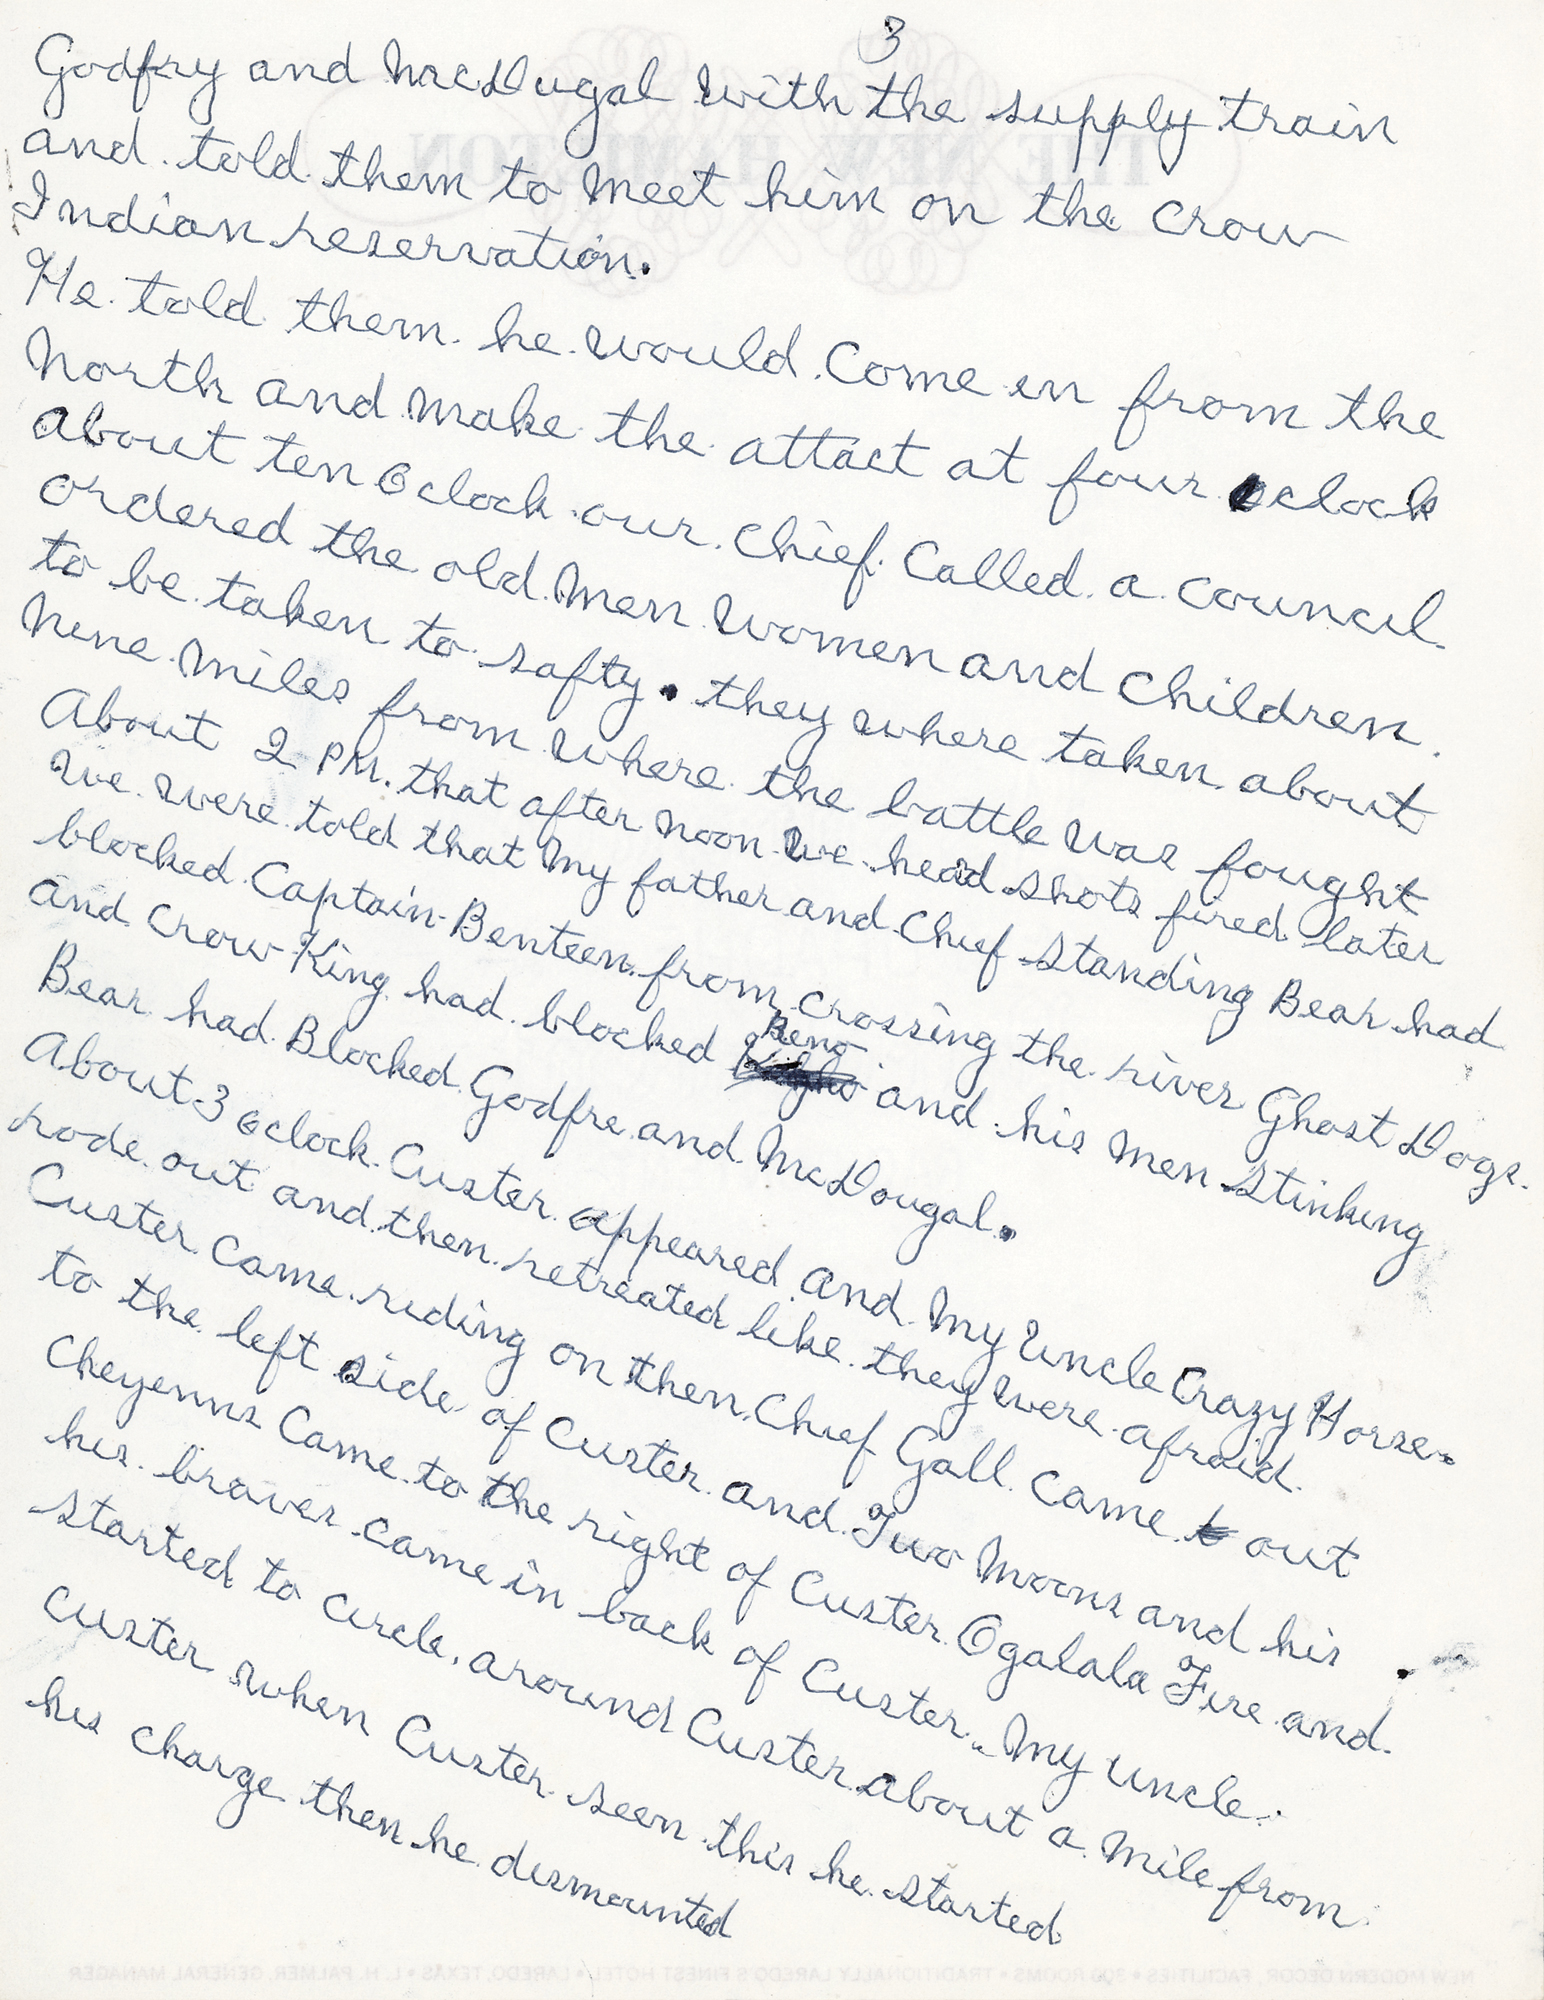 3
Godfry and McDugal with the supply train
and told them to meet him on the Crow
Indian reservation.
He told them he would come in from the
North and make the attact at four oclock
About ten Oclock our chief called a council.
ordered the old men women and children.
to be taken to safty. they where taken about
nine miles from where the battle was fought
About 2 PM. that after noon we heard shots fired later
we were told that my father and Chief Standing Bear had
blocked Captain Benteen from crossing the river Ghost Dogs.
and Crow King had blocked Reno and his men Stinking
Bear had Blocked Godfre and McDougal.
About 3 oclock Custer appeared and my Uncle Crazy Horse.
rode out and then retreated like they were afraid.
Custer came riding on then Chief Gall came out
to the left side of Custer and Two Moons and his
Cheyenns came to the right of Custer Ogalala Fire and.
his braves came in back of Custer. My uncle.
started to circle, around Custer about a mile from
Custer when Custer seen this he started
his charge then he dismounted
THE NEW HAMILTON
NEW MODERN DECOR, FACILITIES • 300 ROOMS • TRADITIONALLY LAREDO'S FINEST HOTEL • LAREDO, TEXAS • L. H. PALMER, GENERAL MANAGER